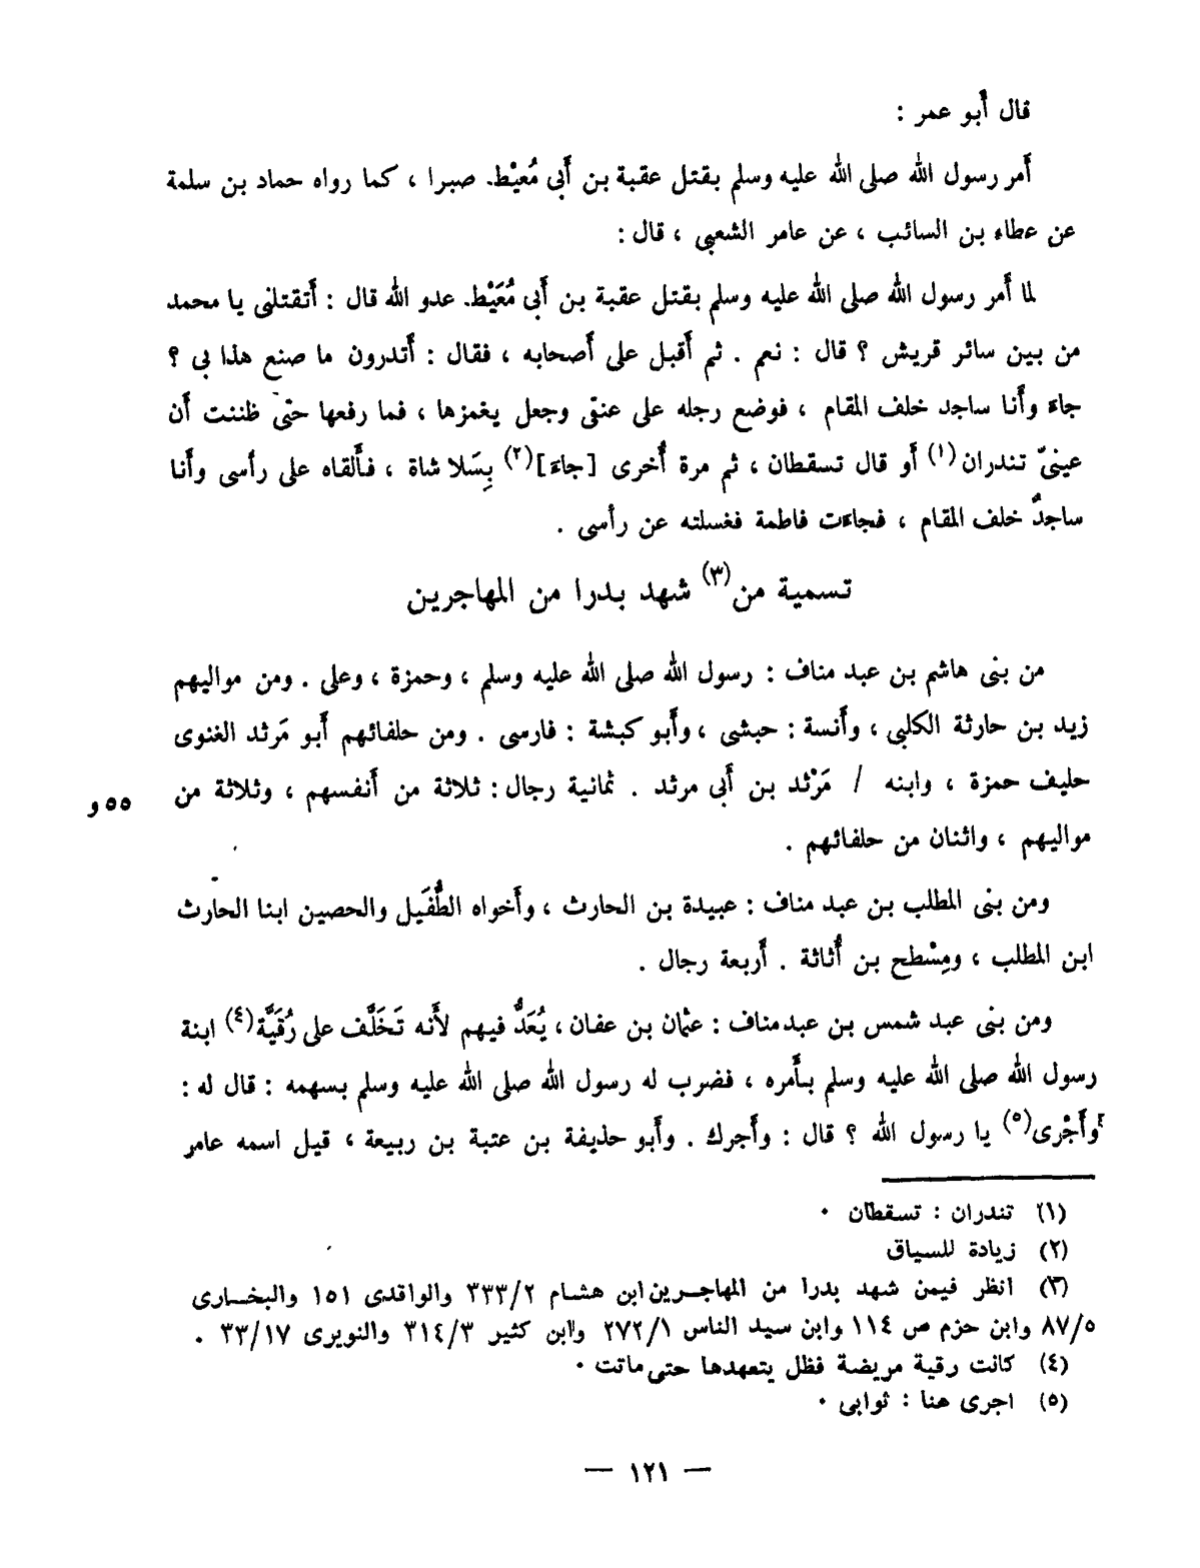 قال أَبو عمر :
أَمر رسول الله صلى الله عليه وسلم بقتل عقبة بن أَبى مُعيْط صبرا ، كما رواه حماد بن سلمة
عن عطاء بن السائب ، عن عامر الشعبى ، قال :
لما أَمر رسول الله صلى الله عليه وسلم بقتل عقبة بن أَبى مُعَيْط عدو الله قال : أَتقتلنى يا محمد
من بين سائر قريش ؟ قال : نعم . ثم أَقبل على أَصحابه ، فقال : أَتدرون ما صنع هذا بى ؟
جاءَ وأَنا ساجد خلف المقام ، فوضع رجله على عنقى وجعل يغمزها ، فما رفعها حتى ظننت أَن
عينىّ تندران(١) أَو قال تسقطان ، ثم مرة أُخرى [جاءَ](٢) بِسَلا شاة ، فأَلقاه على رأسى وأَنا
ساجدٌ خلف المقام ، فجاءَت فاطمة فغسلته عن رأسى .
تسمية من(٣) شهد بدرا من المهاجرين
من بنى هاشم بن عبد مناف : رسول الله صلى الله عليه وسلم ، وحمزة ، وعلى . ومن مواليهم
زيد بن حارثة الكلبى ، وأَنسة : حبشى ، وأَبو كبشة : فارسى . ومن حلفائهم أَبو مَرثد الغنوى
حليف حمزة ، وابنه / مَرْثد بن أَبى مرثد . ثمانية رجال : ثلاثة من أَنفسهم ، وثلاثة من
٥٥ و
مواليهم ، واثنان من حلفائهم .
ومن بنى المطلب بن عبد مناف : عبيدة بن الحارث ، وأَخواه الطُّفَيل والحصين ابنا الحارث
ابن المطلب ، ومِسْطح بن أُثاثة . أَربعة رجال .
ومن بنى عبد شمس بن عبدمناف : عثمان بن عفان ، يُعَدُّ فيهم لأَنه تَخَلَّف على رُقَيَّة(٤) ابنة
رسول الله صلى الله عليه وسلم بأَمره ، فضرب له رسول الله صلى الله عليه وسلم بسهمه : قال له :
وأَجْرى(٥) يا رسول الله ؟ قال : وأَجرك . وأَبو حذيفة بن عتبة بن ربيعة ، قيل اسمه عامر
(١) تندران : تسقطان .
(٢) زيادة للسياق
(٣) انظر فيمن شهد بدرا من المهاجرين ابن هشام ٣٣٣/٢ والواقدى ١٥١ والبخارى
٨٧/٥ وابن حزم ص ١١٤ وابن سيد الناس ٢٧٢/١ وابن كثير ٣١٤/٣ والنويرى ٣٣/١٧ .
(٤) كانت رقية مريضة فظل يتعهدها حتى ماتت .
(٥) اجرى هنا : ثوابى .
— ١٢١ —